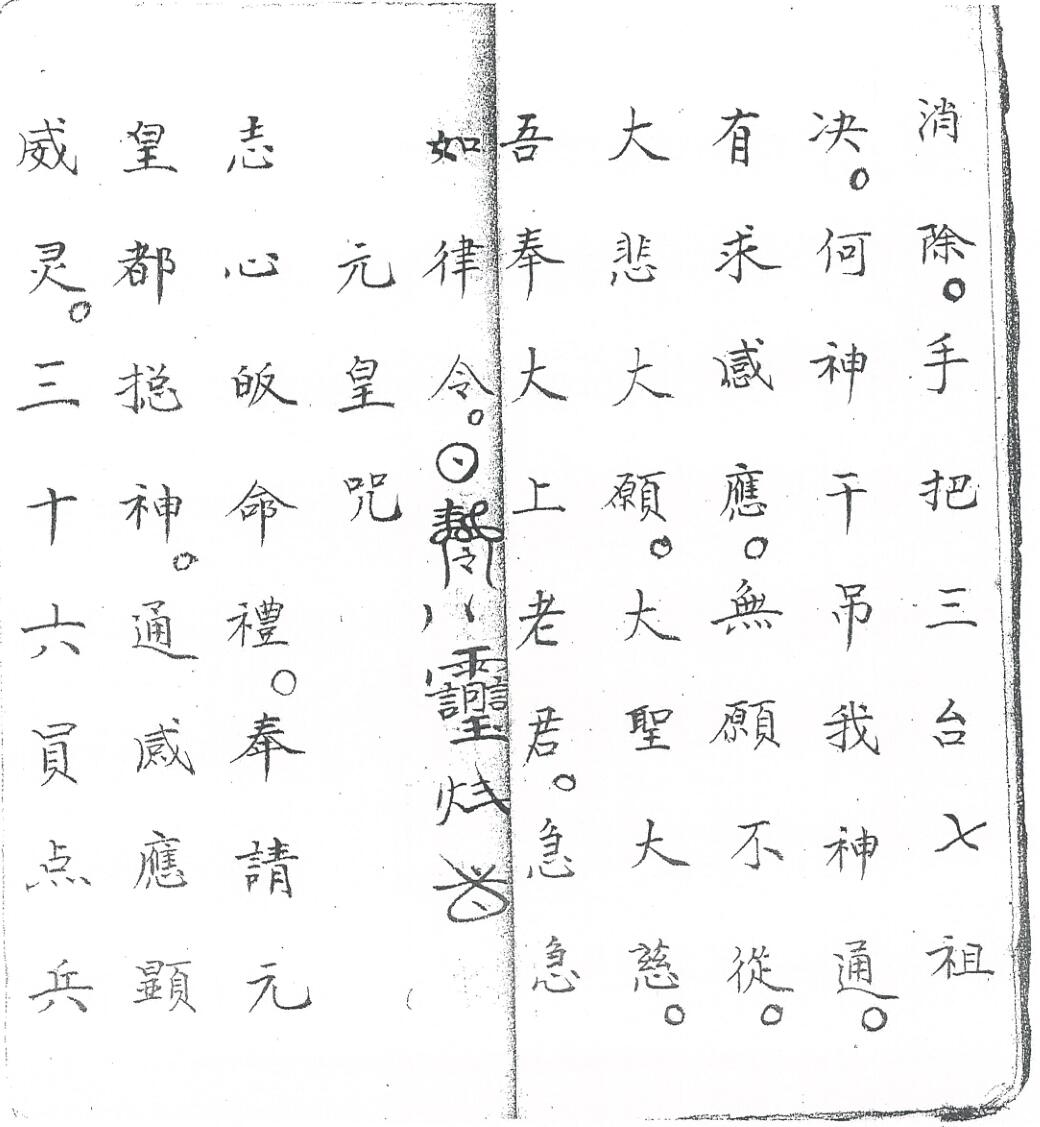 消除。手把三台七祖
决。何神干吊我神通。
有求感應。無願不從。
大悲大願。大聖大慈。
吾奉大上老君。急急
如律令。
元皇咒
志心皈命禮。奉請元
皇都摠神。通感應顯
威灵。三十六員点兵